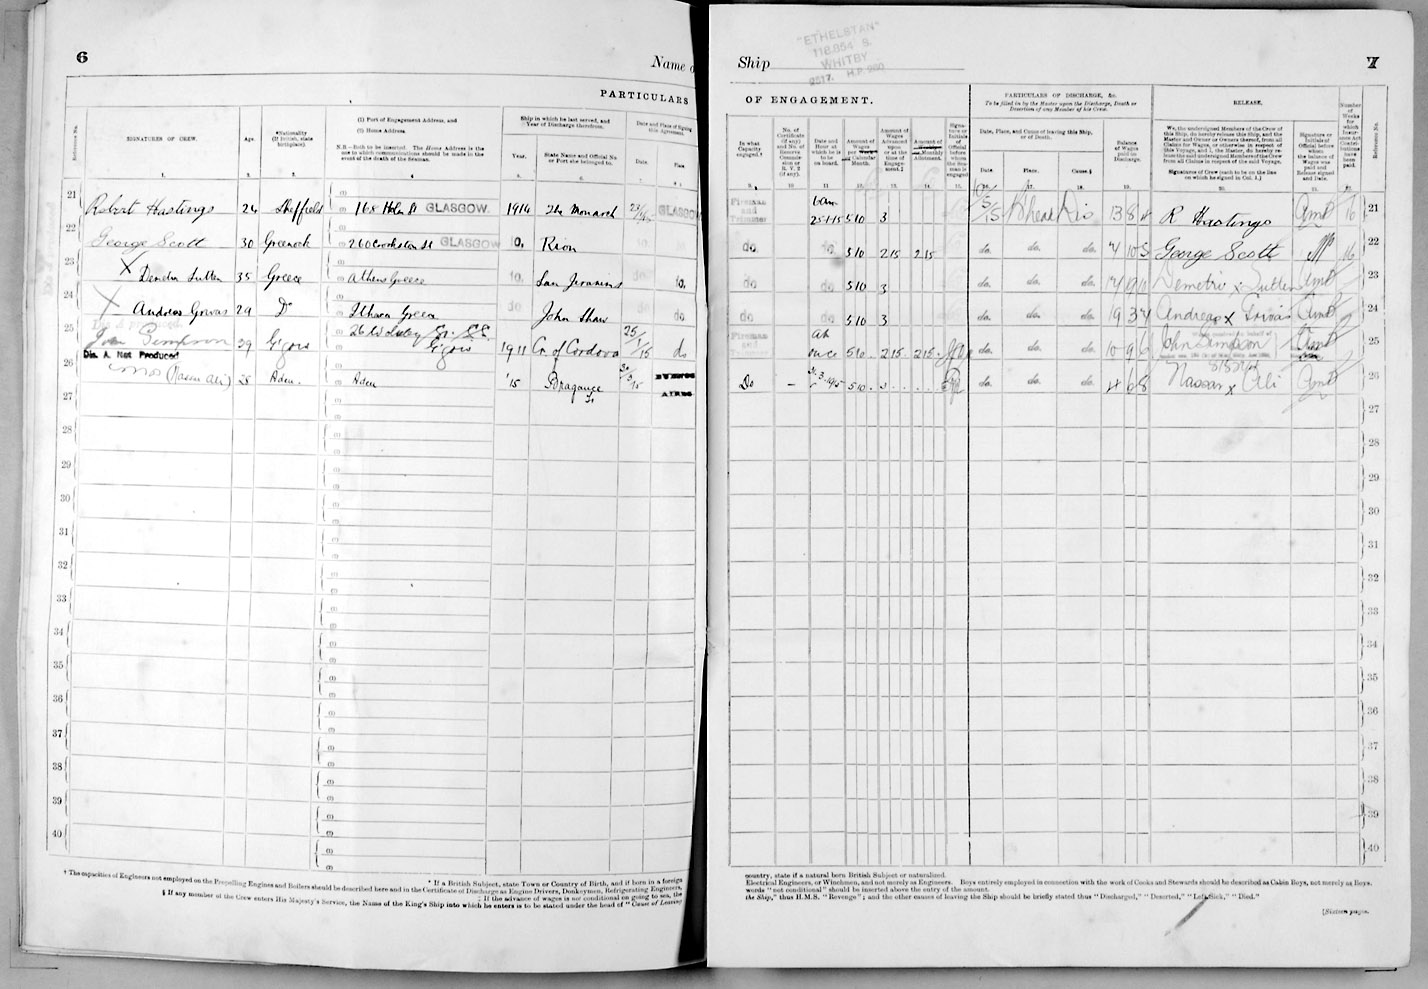 6
Name o
PARTICULARS
Reference No.
SIGNATURES OF CREW.
Age.
*Nationality
(If British, state
birthplace).
(1) Port of Engagement Address, and
(2) Home Address.
N.B.—Both to be inserted. The Home Address is the
one to which communications should be made in the
event of the death of the Seaman.
Ship in which he last served, and
Year of Discharge therefrom.
Year.
State Name and Official No.
or Port she belonged to.
Date and Place of Signing
this Agreement.
Date.
Place
1. 2. 3. 4 5. 6. 7.
21 Robert Hastings 24 Sheffield 168 Holm St GLASGOW. 1914 The Monarch 23/1/15 GLASGOW
22 George Scott 30 Greenock 260 Crookston St GLASGOW Do. Rion do. do
23 X 35 Greece Athens Greece do. San Jeronimo do do.
24 X Andreas Grivas 29 Do Ithaca Greece do John Shaw do do
25 Dis A produced.
John Simpson 29 Gigors 26 W Gigors 1911 Cn. of Cordova 25/1/15 do
26 Dis. A. Not Produced
(Nassar Ali) 28 Aden. Aden '15 Bragance 30/3/15 BUENOS
AIRES
27
28
29
30
31
32
33
34
35
36
37
38
39
40
* If a British Subject, state Town or Country of Birth, and if born in a foreign
† The capacities of Engineers not employed on the Propelling Engines and Boilers should be described here and in the Certificate of Discharge as Engine Drivers, Donkeymen, Refrigerating Engineers,
‡ If the advance of wages is not conditional on going to sea, the
§ If any member of the Crew enters His Majesty's Service, the Name of the King's Ship into which he enters is to be stated under the head of "Cause of Leaving
"ETHELSTAN"
118,854 S.
WHITBY
2517. H.P. 260
Ship
7
OF ENGAGEMENT.
PARTICULARS OF DISCHARGE, &c.
To be filled in by the Master upon the Discharge, Death or
Desertion of any Member of his Crew.
RELEASE.
In what
Capacity
engaged.†
No. of
Certificate
(if any)
and No. of
Reserve
Commis-
sion or
R. V. 2
(if any).
Date and
Hour at
which he is
to be
on board.
Amount of
Wages
per Week or
Calendar
Month.
Amount of
Wages
Advanced
upon
or at the
time of
Engage-
ment.‡
Amount of
Monthly
Allotment.
Signa-
ture or
Initials
of
Official
before
whom
the Sea-
man is
engaged
Date, Place, and Cause of leaving this Ship,
or of Death.
Date.
Place.
Cause.§
Balance
of Wages
paid on
Discharge.
We, the undersigned Members of the Crew of
this Ship, do hereby release this Ship, and the
Master and Owner or Owners thereof, from all
Claims for Wages, or otherwise in respect of
this Voyage, and I, the Master, do hereby re-
lease the said undersigned Members of the Crew
from all Claims in respect of the said Voyage.
Signatures of Crew (each to be on the line
on which he signed in Col. 1.)
Signature or
Initials of
Official before
whom
the balance
of Wages
was
paid and
Release signed
and Date.
Number
of
Weeks
for
which
Insur-
ance Act
Contri-
butions
have
been
paid.
Reference No.
9. 10 11 12. 13. 14. 15. 16. 17. 18. 19. 20. 21. 22.
Fireman
and
Trimmer 6am
25-1-15 5 10 3 Dis 13 8 R Hastings 16 21
do. do 5 10 2 15 2 15 do. do. do. 7 10 5 George Scott 16 22
do do 5 10 3 do. do. do. Demetri x 23
do. do 5 10 3 do. do. do. 19 3 4 Andreas x Grivas 24
Fireman
and
Trimmer at
once 5 10. 2 15. 2 15. do. do. do. 10 9 6 John Simpson 25
Do — 5 10. 3 do. do. do. 4 6 8 Nassar x Ali 26
27
28
29
30
31
32
33
34
35
36
37
38
39
40
country, state if a natural born British Subject or naturalized.
Electrical Engineers, or Winchmen, and not merely as Engineers. Boys entirely employed in connection with the work of Cooks and Stewards should be described as Cabin Boys, not merely as Boys.
words "not conditional" should be inserted above the entry of the amount.
the Ship," thus H.M.S. "Revenge"; and the other causes of leaving the Ship should be briefly stated thus "Discharged," "Deserted," "Left Sick," "Died."
[Sixteen pages.